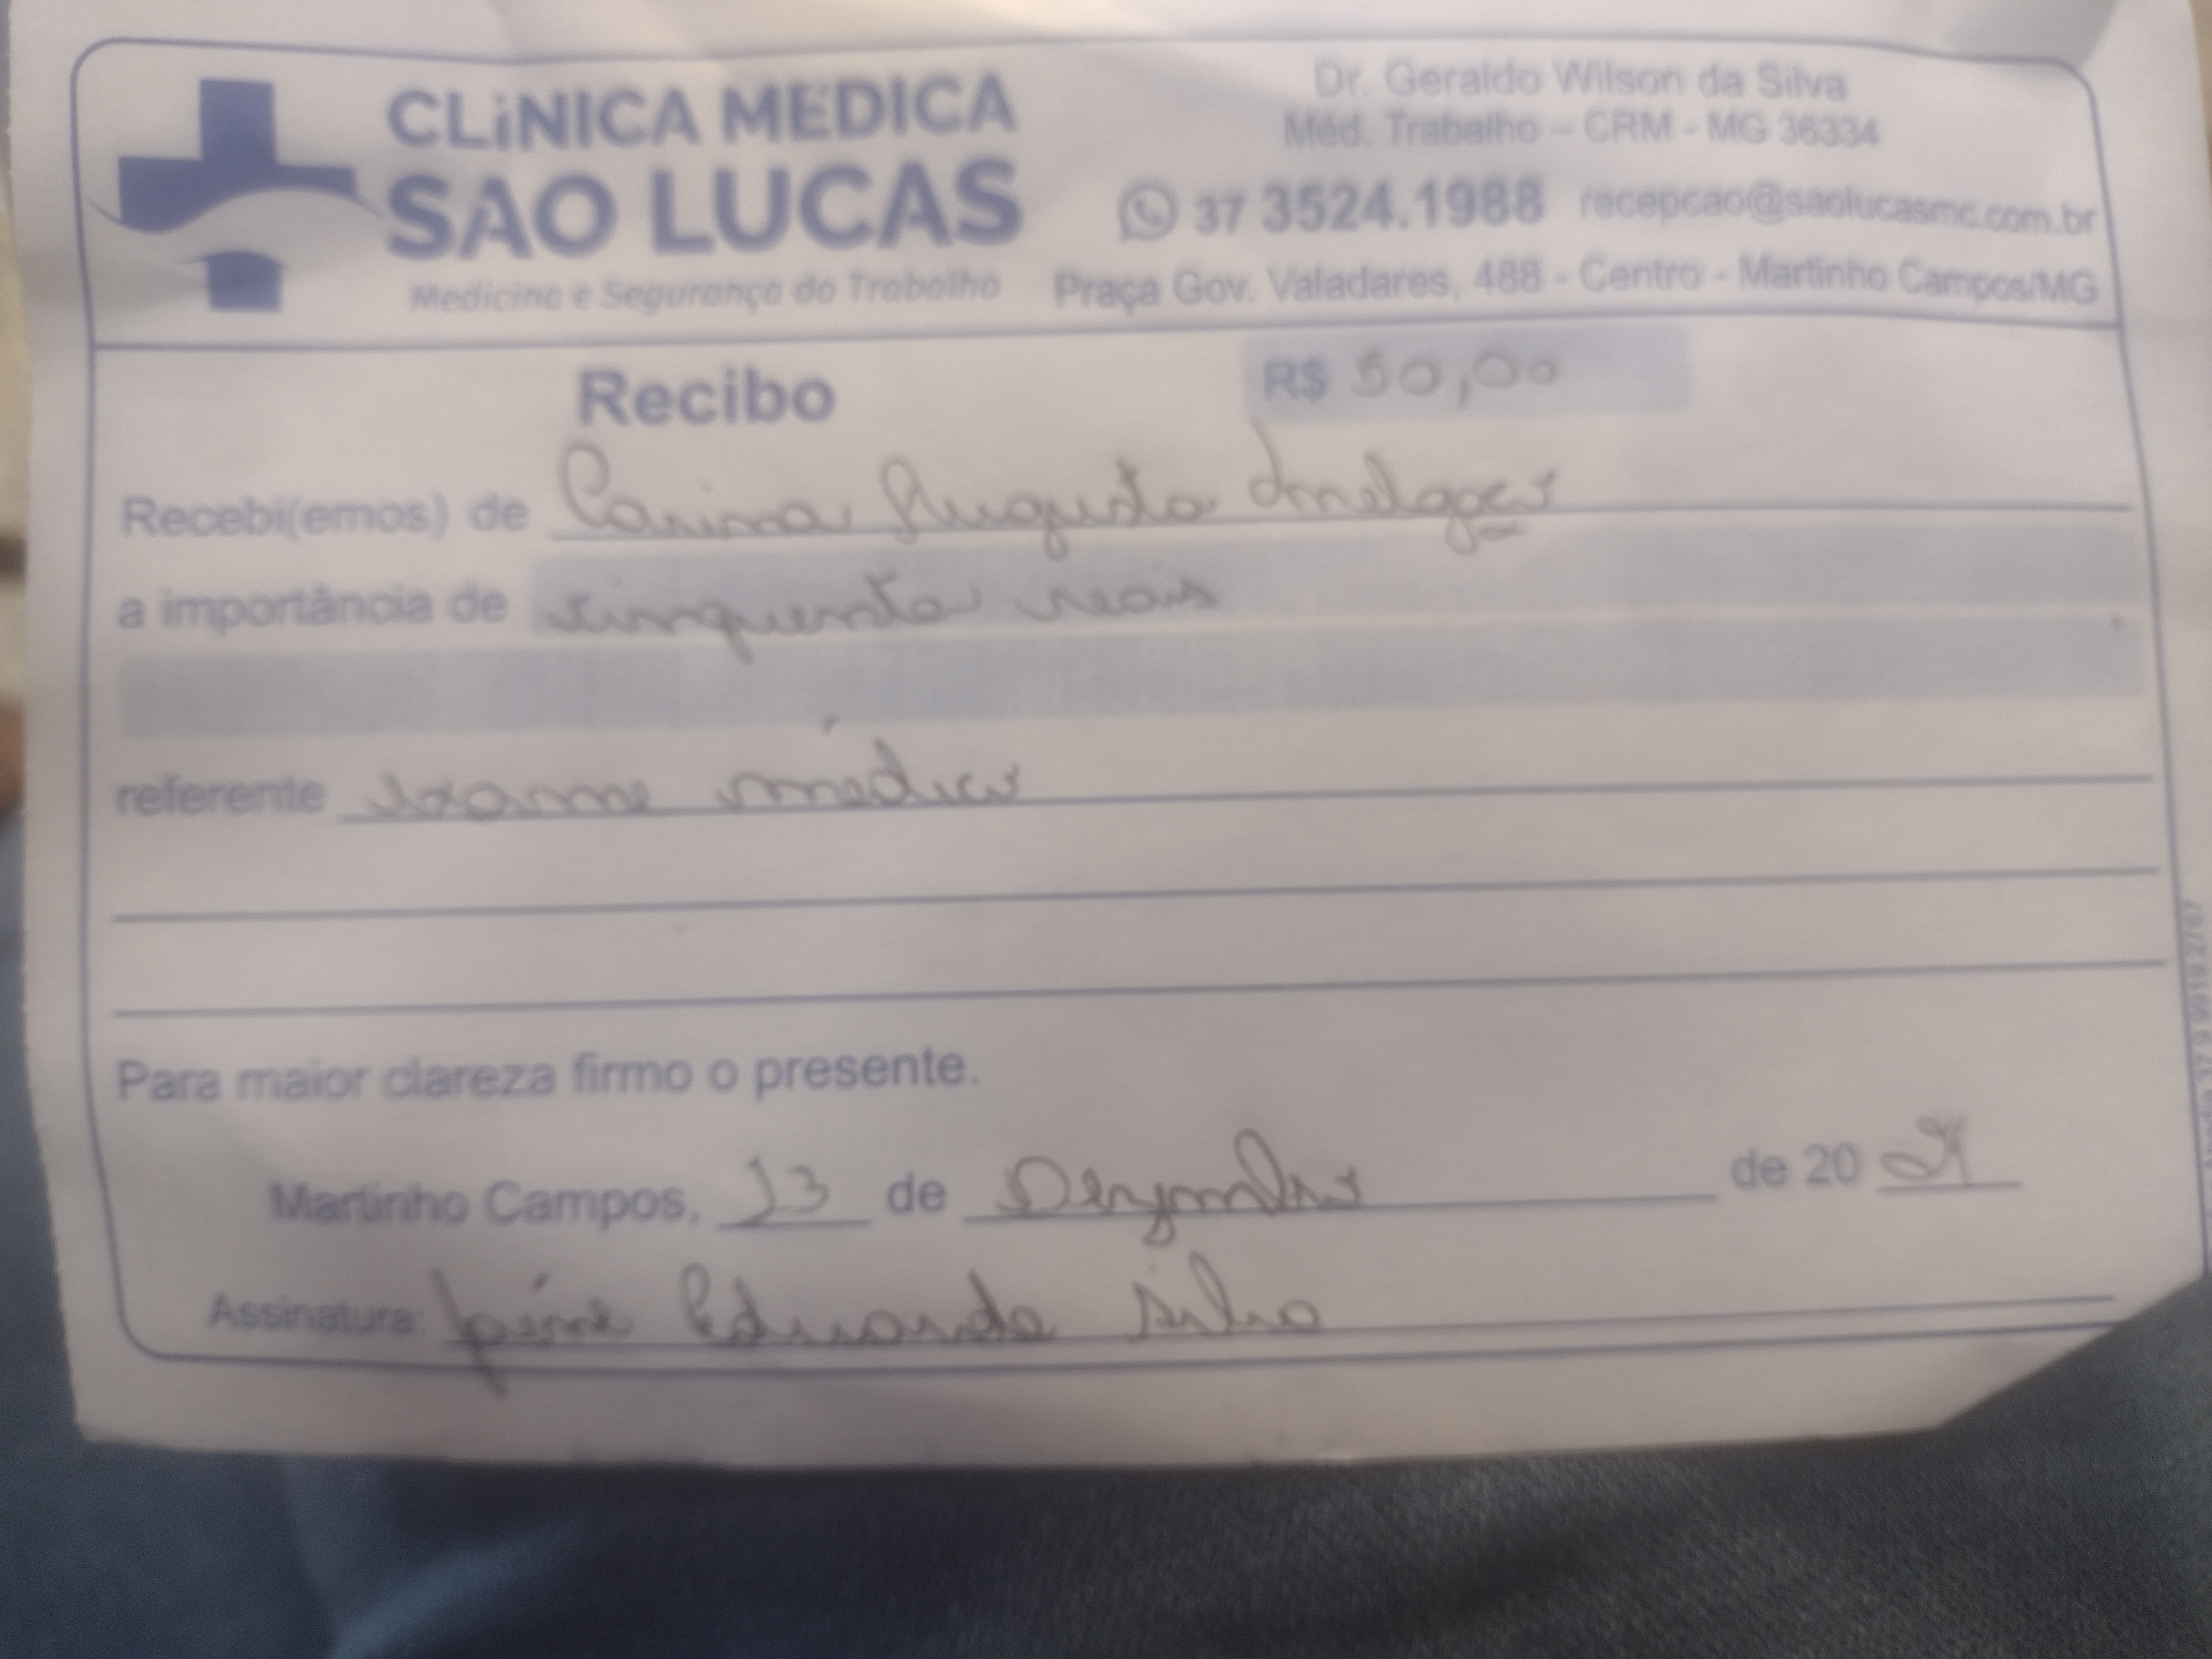 CLÍNICA MÉDICA
SÃO LUCAS
Medicina e Segurança do Trabalho
Dr. Geraldo Wilson da Silva
Méd. Trabalho – CRM - MG 36334
37 3524.1988 recepcao@saolucasmc.com.br
Praça Gov. Valadares, 488 - Centro - Martinho Campos/MG
Recibo R$ 50,00
Recebi(emos) de Carina Augusta
a importância de cinquenta reais
referente exame médico
Para maior clareza firmo o presente.
Martinho Campos, 13 de Dezembro de 20 24
Assinatura: Eduarda Silva